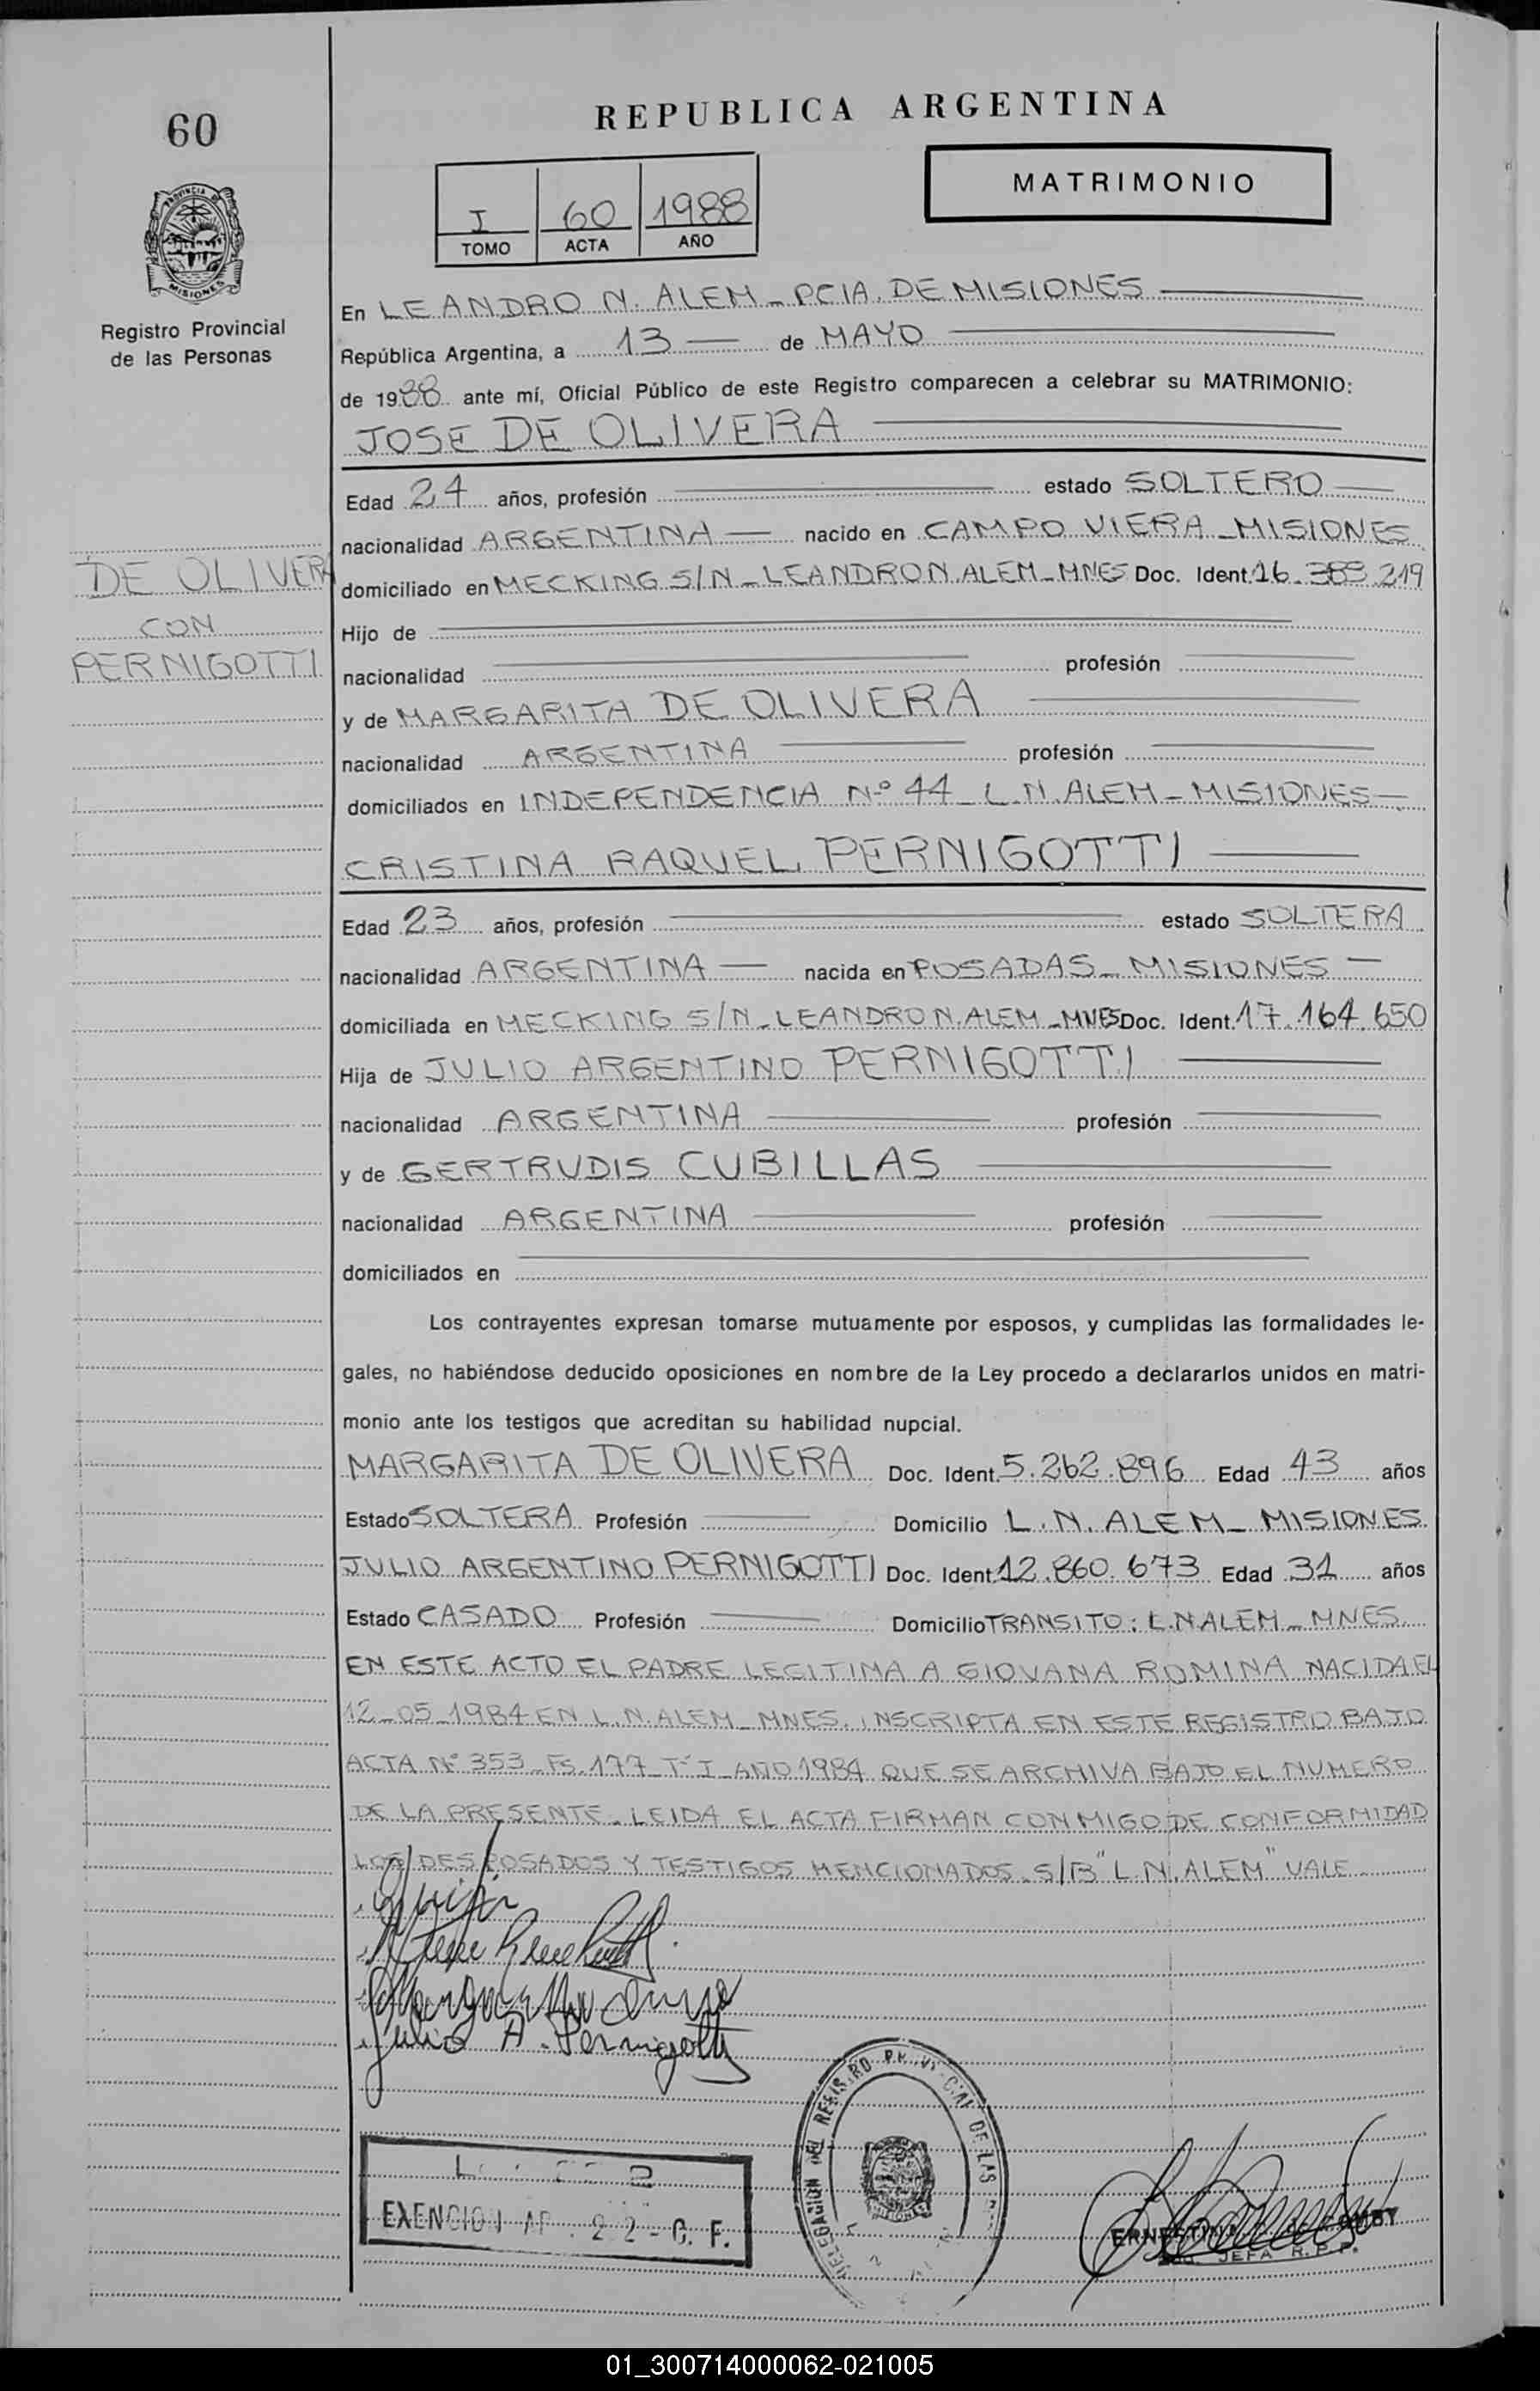 60
PROVINCIA DE
MISIONES
Registro Provincial
de las Personas
DE OLIVERA
CON
PERNIGOTTI
REPUBLICA ARGENTINA
MATRIMONIO
I 60 1988
TOMO ACTA AÑO
En LEANDRO N. ALEM - PCIA. DE MISIONES
República Argentina, a 13 de MAYO
de 1988 ante mí, Oficial Público de este Registro comparecen a celebrar su MATRIMONIO:
JOSE DE OLIVERA
Edad 24 años, profesión estado SOLTERO
nacionalidad ARGENTINA nacido en CAMPO VIERA - MISIONES
domiciliado en MECKING S/N - LEANDRO N. ALEM - MNES Doc. Ident. 16.389.219
Hijo de
nacionalidad profesión
y de MARGARITA DE OLIVERA
nacionalidad ARGENTINA profesión
domiciliados en INDEPENDENCIA Nº 44 - L.N. ALEM - MISIONES -
CRISTINA RAQUEL PERNIGOTTI
Edad 23 años, profesión estado SOLTERA
nacionalidad ARGENTINA nacida en POSADAS - MISIONES
domiciliada en MECKING S/N - LEANDRO N. ALEM - MNES Doc. Ident. 17.164.650
Hija de JULIO ARGENTINO PERNIGOTTI
nacionalidad ARGENTINA profesión
y de GERTRUDIS CUBILLAS
nacionalidad ARGENTINA profesión
domiciliados en
Los contrayentes expresan tomarse mutuamente por esposos, y cumplidas las formalidades le-
gales, no habiéndose deducido oposiciones en nombre de la Ley procedo a declararlos unidos en matri-
monio ante los testigos que acreditan su habilidad nupcial.
MARGARITA DE OLIVERA Doc. Ident. 5.262.896 Edad 43 años
Estado SOLTERA Profesión Domicilio L.N. ALEM - MISIONES
JULIO ARGENTINO PERNIGOTTI Doc. Ident. 12.860.673 Edad 31 años
Estado CASADO Profesión Domicilio TRANSITO: L.N. ALEM - MNES.
EN ESTE ACTO EL PADRE LEGITIMA A GIOVANA ROMINA NACIDA EL
12-05-1984 EN L.N. ALEM - MNES. INSCRIPTA EN ESTE REGISTRO BAJO
ACTA Nº 353 - Fs. 177 - Tº I - AÑO 1984 QUE SE ARCHIVA BAJO EL NUMERO
DE LA PRESENTE - LEIDA EL ACTA FIRMAN CONMIGO DE CONFORMIDAD
LOS DESPOSADOS Y TESTIGOS MENCIONADOS. S/B "L.N. ALEM" VALE
Julio A. Pernigotti
DELEGACION DEL REGISTRO PROVINCIAL DE LAS
EXENCION AP. 22 - C. F.
JEFA R.P.P.
01_300714000062-021005